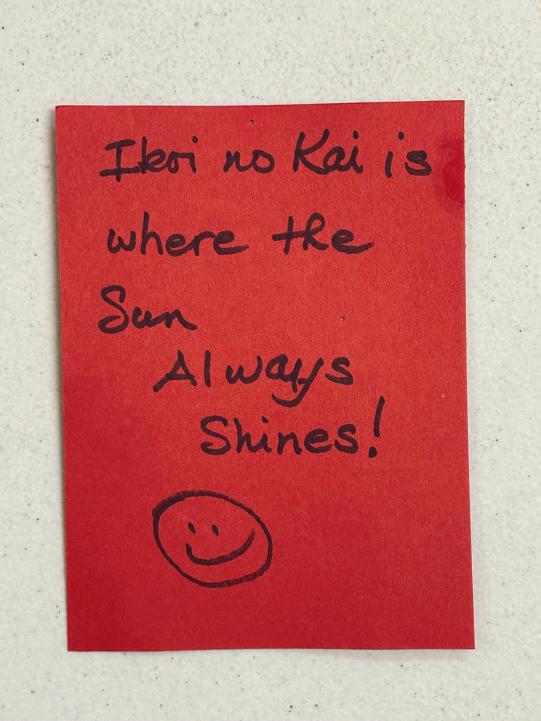 Ikoi no Kai is
where the
Sun
Always
Shines!